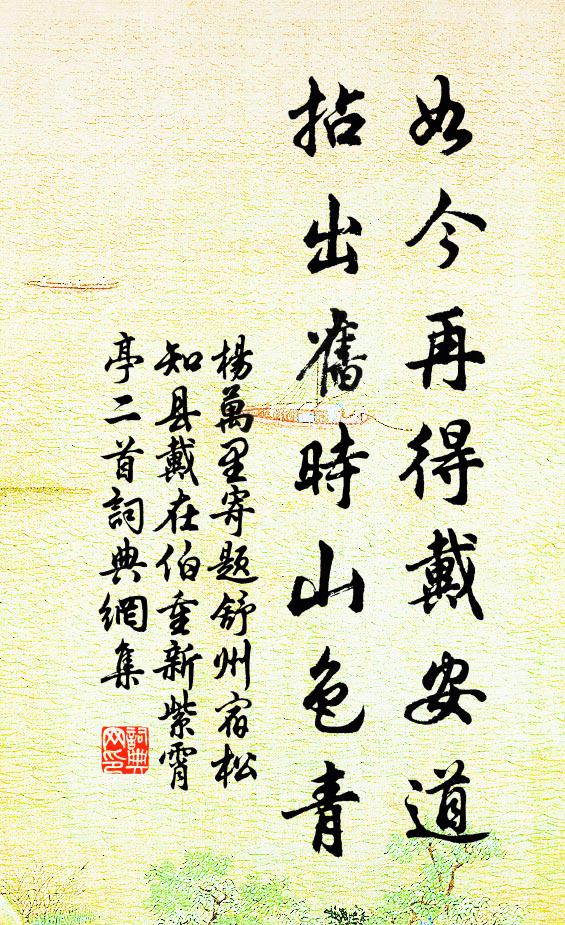 如今再得戴安道
拈出舊時山色青
楊萬里寄題舒州宿松
知县戴在伯重新紫霄
亭二首詞典網集
詞典
网印